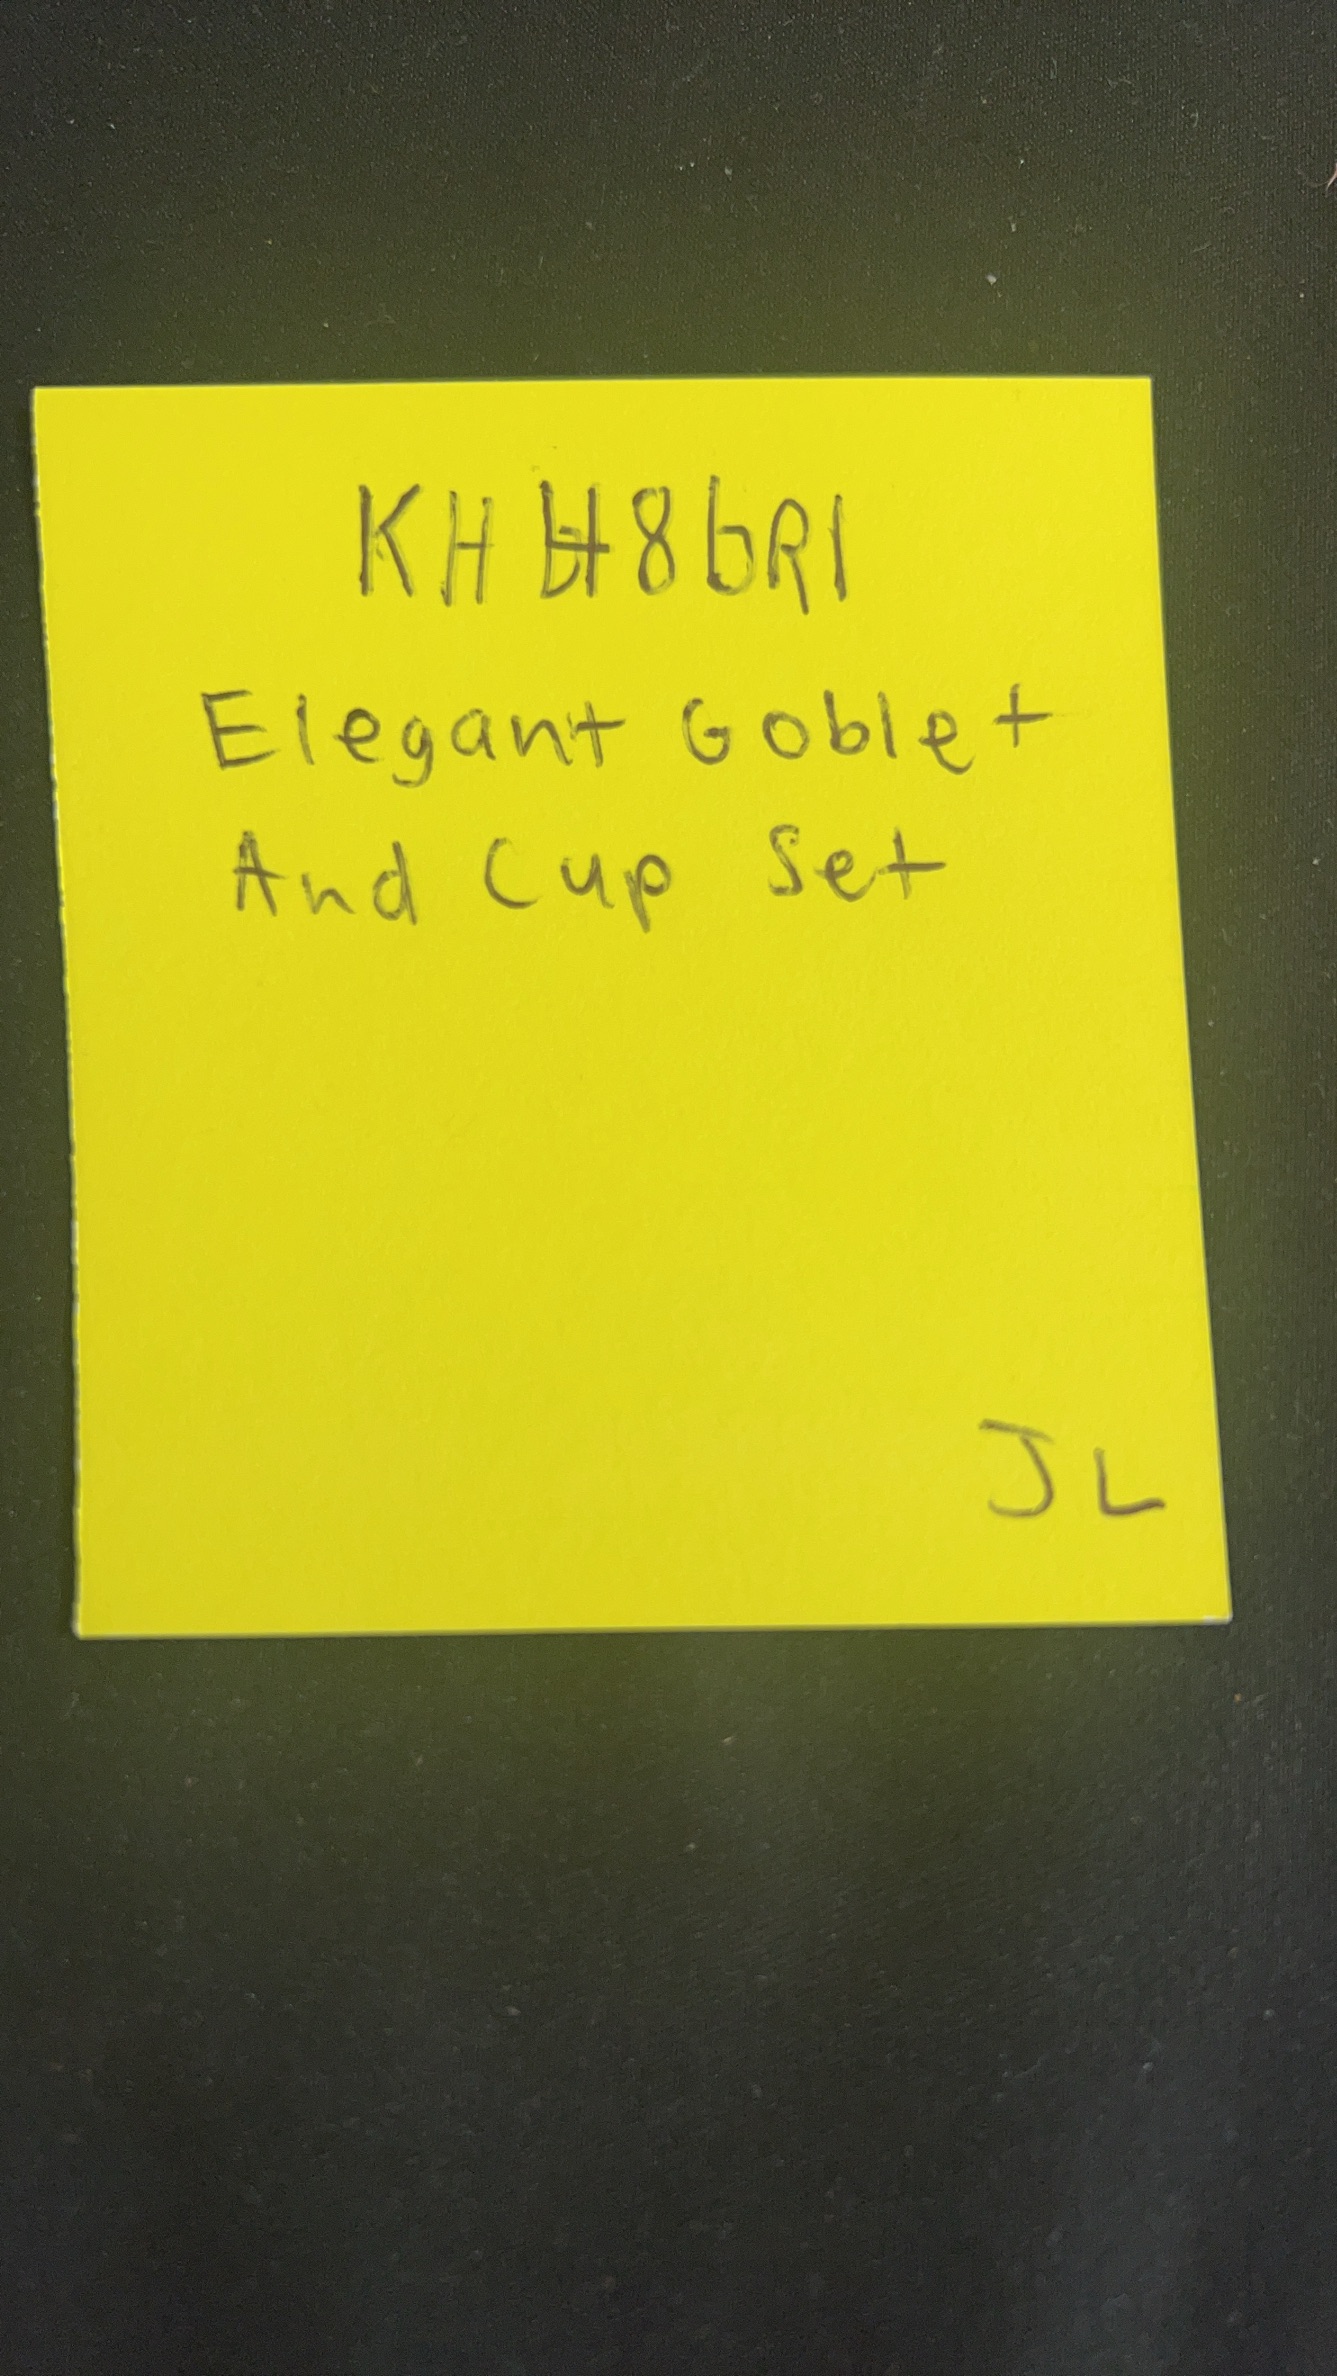 KHH86R1
Elegant Goblet
And Cup Set
JL